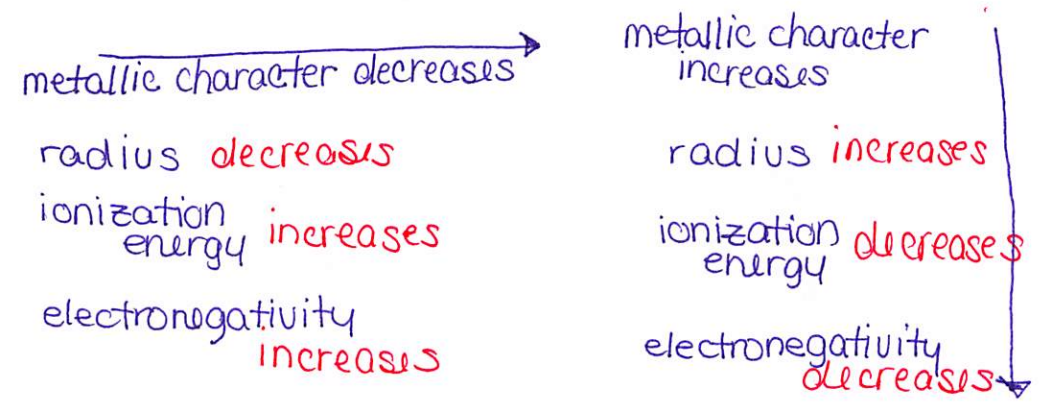 metallic character decreases
radius decreases
ionization
energy increases
electronegativity
increases
metallic character
increases
radius increases
ionization decreases
energy
electronegativity
decreases